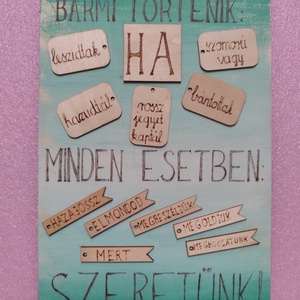 BÁRMI TÖRTÉNIK:
HA
leszidtak
szomorú
vagy
hazudtál
rossz
jegyet
kaptál
bántottak
MINDEN ESETBEN:
HAZAJÖSSZ
ELMONDOD
MEGBESZÉLJÜK
MEGOLDJUK
MEGBOCSÁTUNK
MERT
SZERETÜNK!